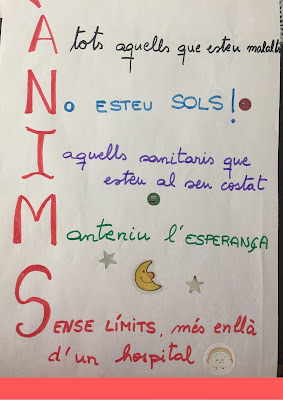 A tots aquells que esteu malalts
No ESTEU SOLS!
I aquells sanitaris que
esteu al seu costat
Manteniu l'ESPERANÇA
SENSE LÍMITS, més enllà
d'un hospital